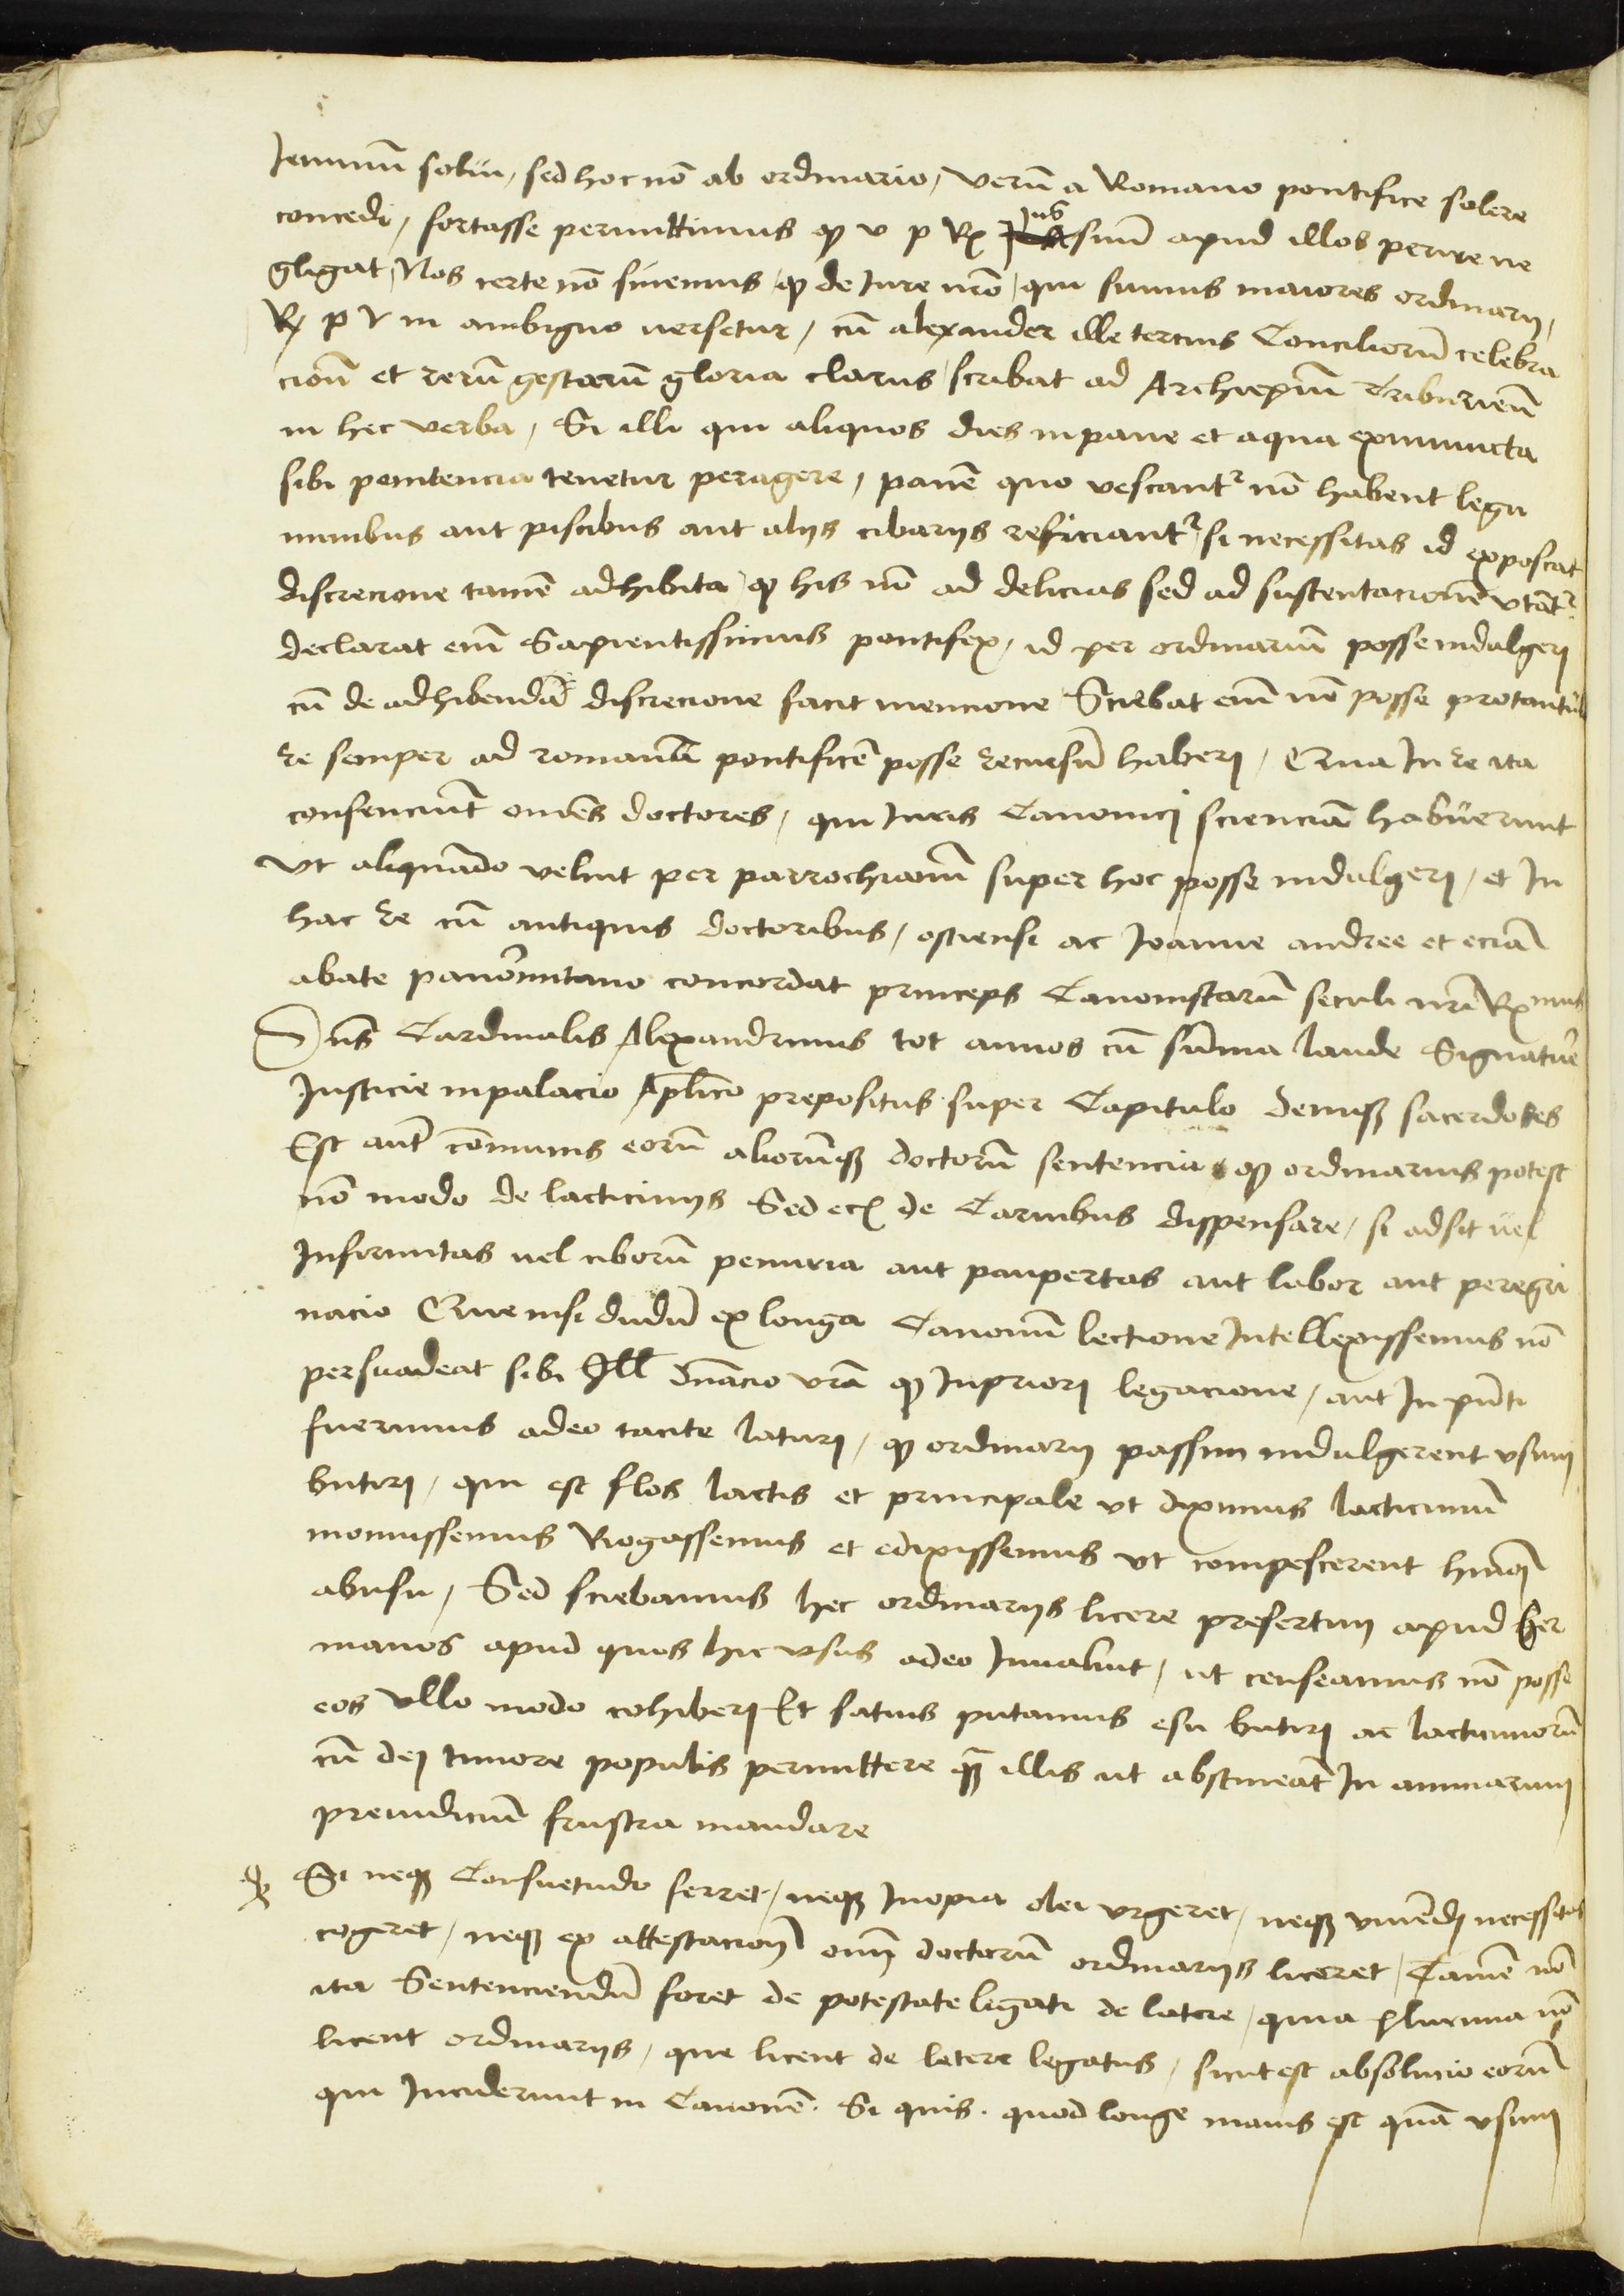 Ieiuniũ solui, sed hoc nõ ab ordinario, verũ a Romano pontifice solere
concedi, fortasse permittimus ꝙ v p Rx Jus suũ apud illos perire ne
gligat, Nos certe nõ sinemus, ꝙ de Jure nr̃o, qui sumus maiores ordinarij,
Rx p v in ambiguo versetur, cũ alexander ille tercius Conciliorũ celebra
cioñ et rerũ gestarũ gloria clarus scribat ad Archiepũm Triburieñ
in hec verba, Si illi qui aliquos dies in pane et aqua ex iniuncta
sibi penitencia tenetur peragere, panẽ quo vescantr̃ nõ habent legu
minibus aut piscibus aut alijs cibarijs reficiantr̃ si necessitas id exposcat
discrecione tamẽ adhibita ꝙ his nõ ad delicias sed ad sustentacionẽ vtãtr̃
declarat eñi Sapientissimus pontifex, id per ordinariũ posse indulgerj
cũ de adhibenda discrecione facit mencione Sciebat eñi nõ posse pro tantula
re semper ad romanũ pontificẽ posse recursũ haberj, Qua In re ita
consenciũt omẽs doctores, qui Iuris Canonicj scienciã habuerunt
Vt aliquãdo velint per parrochianũ super hoc posse indulgerj, et In
hac re cũ antiquis doctoribus, ostiensi ac Joanne andree et eciã
abate panormitano concordat princeps Canonistarũ seculi nr̃i Rxmus
Dñs Cardinalis Alexandrinus tot annos cũ sũma laude Signature
Justicie in palacio Aplico prepositus super Capitulo deniqꝫ sacerdotes
Est aut̃ cõmunis eorũ aliorũqꝫ doctorũ sentencia ꝙ ordinarius potest
nõ modo de lacticinijs Sed eciã de Carnibus dispensare, si adsit vel
Infirmitas vel ciborũ penuria aut paupertas aut labor aut peregri
nacio Que nisi dudũ ex longa Canonũ lectione Intellexissemus nõ
persuadeat sibi Ill dñacio vr̃a ꝙ In priorj legacione, aut In pñti
fuerimus adeo tacite laturj, ꝙ ordinarij passim indulgerent vsum
butirj, qui est flos lactis et principale vt diximus lacticiniũ
monuissemus Rogassemus et edixissemus vt compescerent huiusmodi
abusu, Sed sciebamus hec ordinarijs licere presertim apud Ger
manos apud quos hic vsus adeo Inualuit, ut censeamus nõ posse
eos vllo modo cohiberj Et satius putamus esu butirj ac lacticiniorũ
cũ dej timore populis permittere qꝫ illis ut abstineãt In animarum
preiudiciũ frustra mandare
Si neqꝫ Consuetudo ferret, neqꝫ Inopia olei vrgeret, neqꝫ viuẽdj necessitas
cogeret, neqꝫ ex attestacione om̃ doctorũ ordinarijs liceret, Tamẽ nõ
ita Sentenciendũ foret de potestate legati de latere, quia plurima nõ
licent ordinarijs, que licent de latere legatus, sicut est absolucio eorũ
qui Inciderunt in Canonẽ. Si quis. quod longe maius est quã vsum